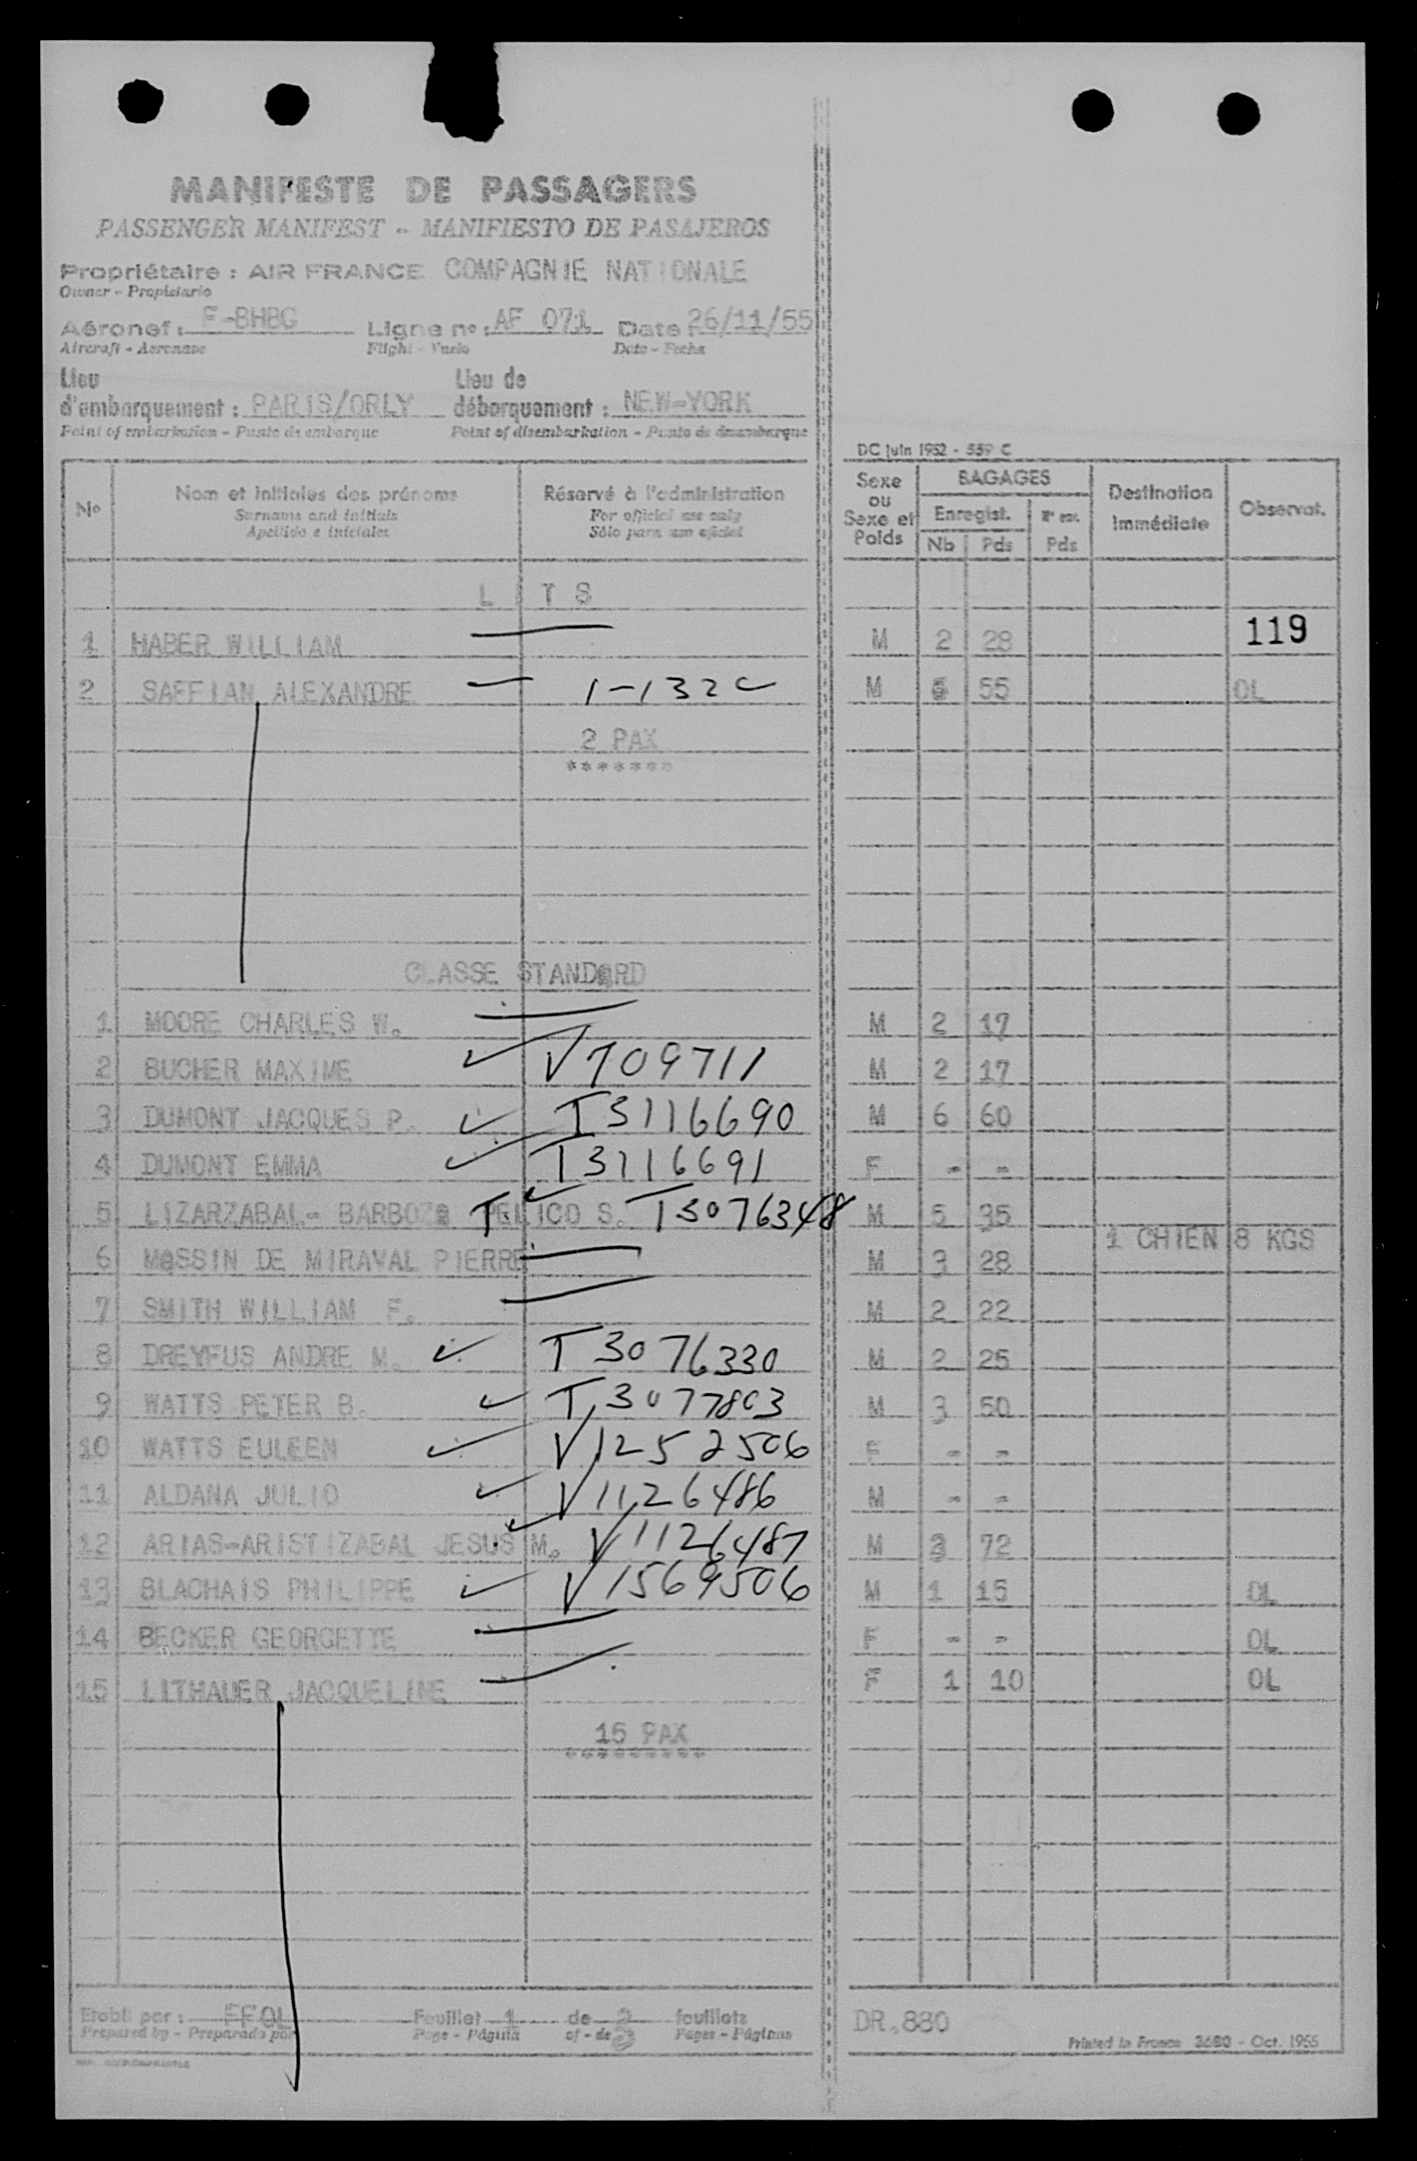 MANIFESTE DE PASSAGERS
PASSENGER MANIFEST - MANIFIESTO DE PASAJEROS
Propriétaire : AIR FRANCE COMPAGNIE NATIONALE
Owner - Propietario
Aéronef : F-BHBG Ligne nº : AF 071 Date 26/11/55
Aircraft - Aeronave Flight - Vuelo Date - Fecha
Lieu d'embarquement : PARIS/ORLY Lieu de débarquement : NEW-YORK
Point of embarkation - Punto de embarque Point of disembarkation - Punto de desembarque
DC Juin 1952 - 559 C
Nº Nom et initiales des prénoms Réservé à l'administration Sexe ou Sexe et Poids BAGAGES Destination immédiate Observat.
Surname and initials For official use only Enregist.
Apellido e iniciales Sólo para uso oficial Nb Pds Pds
L I T S
1 HABER WILLIAM M 2 28 119
2 SAFFIAN ALEXANDRE 1-132 C M 6 55 OL
2 PAX
*******
CLASSE STANDARD
1 MOORE CHARLES W. M 2 17
2 BUCHER MAXIME V709711 M 2 17
3 DUMONT JACQUES P. T3116690 M 6 60
4 DUMONT EMMA T3116691 F - -
5 LIZARZABAL- BARBOZA T PELICO S. T3076348 M 5 35
1 CHIEN 8 KGS
6 MASSIN DE MIRAVAL PIERRE M 3 28
7 SMITH WILLIAM F. M 2 22
8 DREYFUS ANDRE M. T3076330 M 2 25
9 WATTS PETER B. T3077803 M 3 50
10 WATTS EULEEN V1252506 F - -
11 ALDANA JULIO V1126486 M - -
12 ARIAS-ARISTIZABAL JESUS M. V1126487 M 3 72
13 BLACHAIS PHILIPPE V1569506 M 1 15 OL
14 BECKER GEORGETTE F - - OL
15 LITHAUER JACQUELINE F 1 10 OL
15 PAX
*********
Etabli par : FFOL Feuillet 1 de 2 feuillets DR.880
Prepared by - Preparado por Page - Página of - de 3 Pages - Páginas Printed in France 3680 - Oct. 1955